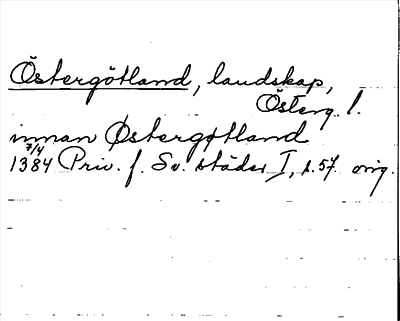 Östergötland, landskap,
Österg. l.
innan Østergøtland
7/4
1384 Priv. f. Sv. städer I, s. 57. orig.